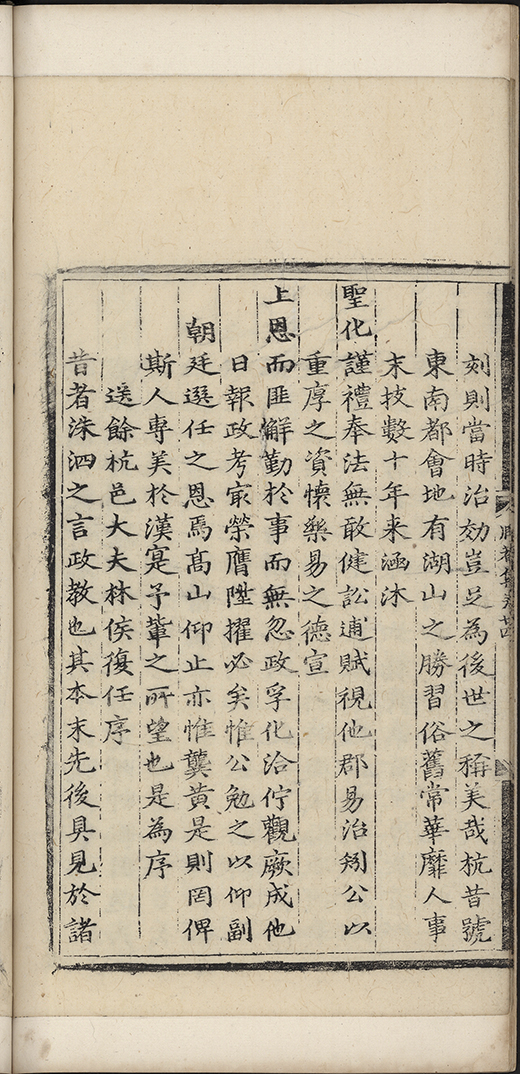 刻則當時治効豈足為後世之稱美哉杭昔號
東南都會地有湖山之勝習俗舊常華靡人事
末技數十年来涵沐
聖化謹禮奉法無敢健訟逋賦視他郡易治矧公以
重厚之資懷樂易之德宣
上恩而匪懈勤於事而無忽政孚化洽佇觀厥成他
日報政考㝡榮膺陞擢必矣惟公勉之以仰副
朝廷選任之恩焉髙山仰止亦惟龔黄是則罔俾
斯人專美於漢寔予輩之所望也是為序
送餘杭邑大夫林侯復任序
昔者洙泗之言政教也其本末先後具見於諸